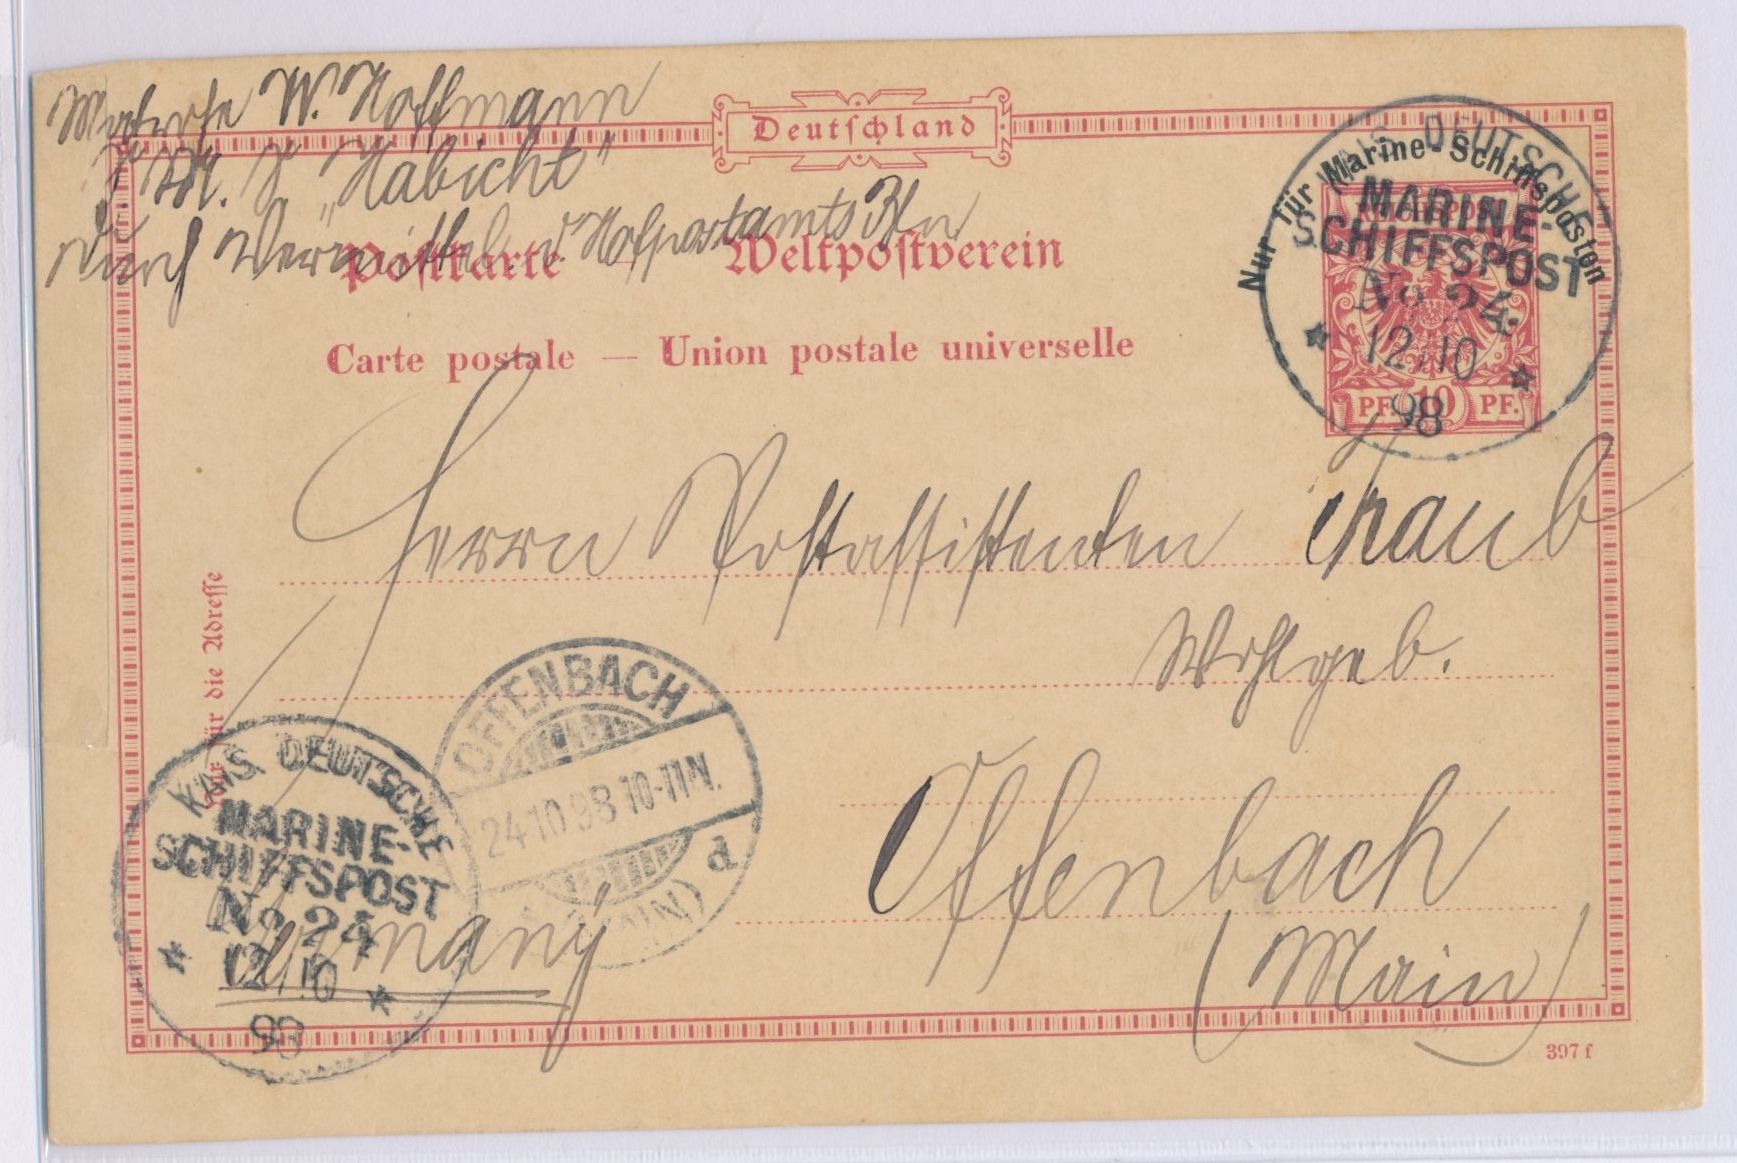 Matrose W. Hoffmann
S. M. S. "Habicht"
Durch Vermittel. d. Hofpostamts Bln
Deutschland
Postkarte — Weltpostverein
Carte postale — Union postale universelle
Nur für Marine-Schiffsposten
REICHSPOST
PF. 10 PF.
KAIS. DEUTSCHE
MARINE-
SCHIFFSPOST
No 24.
* 12/10 *
98
Herrn Postassistenten Traub
Wohlgeb.
Offenbach
(Main)
Germany
Nur für die Adresse
OFFENBACH
24.10.98 10-11N.
(MAIN) d
KAIS. DEUTSCHE
MARINE-
SCHIFFSPOST
No 24
* 12/10 *
98
397 f